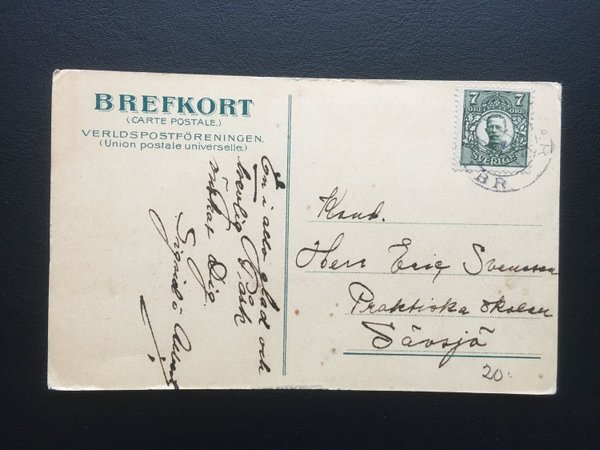 BREFKORT
(CARTE POSTALE.)
VERLDSPOSTFÖRENINGEN.
(Union postale universelle)
En i allo glad och
trevlig Påsk
önskar Dig.
Sigrid i
7 7
SVERIGE
BR
Kand.
Herr Eric Svensson
Praktiska skolan
Sävsjö
20: